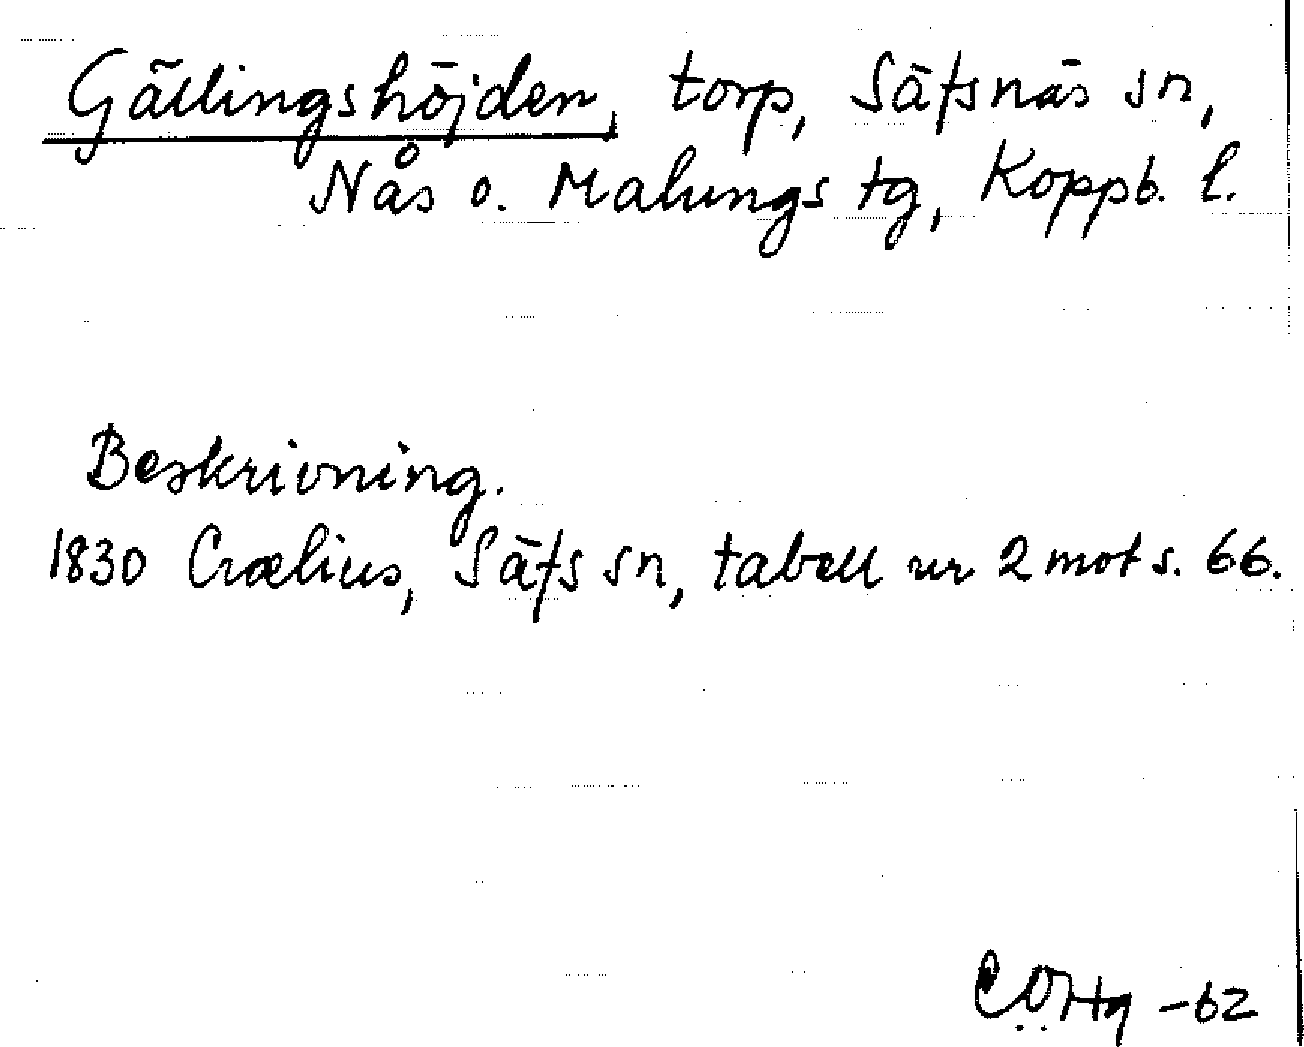 Gällingshöjden, torp, Säfsnäs sn,
Nås o. Malungs tg, Koppb. l.
Beskrivning.
1830 Crælius, Säfs sn, tabell nr 2 mot s. 66.
-62